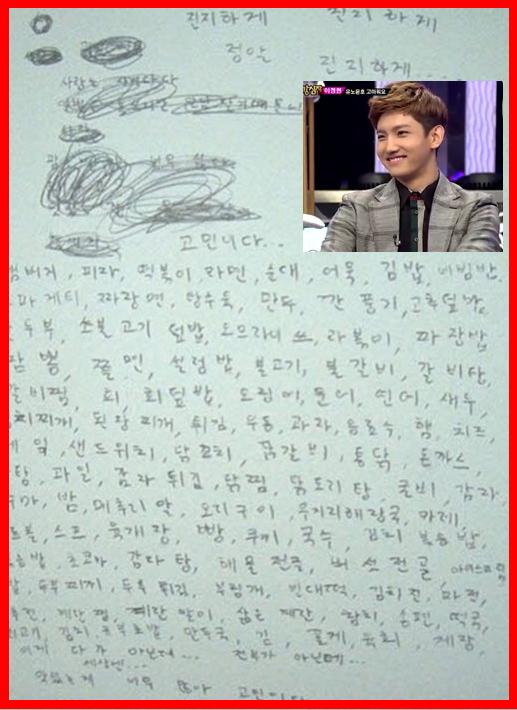 진지하게 진지하게
정말 진지하게...
강심장 이정현 유노윤호 고마워요
사람은
고민니다...
햄버거, 피자, 떡볶이, 라면, 순대, 어묵, 김밥, 비빔밥,
스파게티, 짜장면, 탕수육, 만두, 깐풍기, 고추덮밥,
순두부, 초불고기 덮밥, 오므라이쓰, 라볶이,
짬뽕, 쫄면, 설렁탕, 불고기, 불갈비, 갈비탕,
갈비찜, 회, 회덮밥, 도림에, 문어, 연어, 새우,
김치찌개, 된장찌개, 튀김, 우동, 과자, 음료수, 햄, 치즈,
케잌, 샌드위치, 닭꼬치, 닭갈비, 통닭, 돈까스,
과일, 감자튀김, 닭찜, 닭도리탕, 굴비, 감자,
밤, 메추리알, 오리구이, 우거지해장국, 카레,
스프, 육개장, 빵, 쿠키, 국수, 김치볶음밥,
볶음밥, 초코바, 감자탕, 해물전골, 버섯전골, 아이스크림
두부찌개, 두부튀김, 부침개, 빈대떡, 김치전, 파전,
계란찜, 계란말이, 삶은계란, 참치, 송편, 떡국,
김치, 유부초밥, 만두국, 김, 꽃게, 육회, 게장,
이게 다가 아닌데... 전부가 아닌데...
세상엔...
맛있는게 너무 많아 고민이다